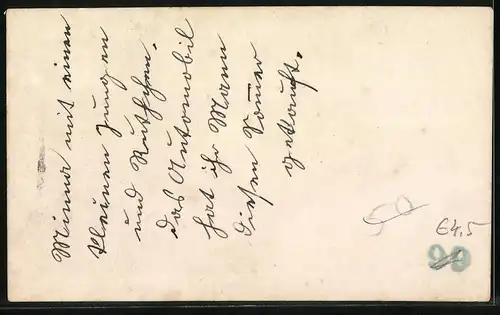 Minna mit einen
kleinen Jungen
und Ruthchen.
das Automobil
hat ihr Mann
diesen Som̅er
gekauft.
90
64,5
90